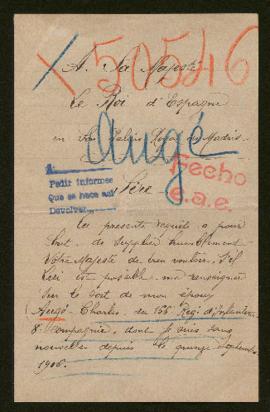 50546
A Sa Majesté
le Roi d'Espagne
en Son Palais Royal de Madrid
Augé
Fecho
e.a.e.
Pedir informes
Que se hace así
Devolver
Sire
La présente requête a pour
but de supplier humblement
Votre Majesté de bien vouloir, s'il
lui est possible, me renseigner
sur le sort de mon époux
Augé Charles, du 156 Reg. d'Infanterie
8e Compagnie, dont je suis sans
nouvelles depuis le quinze Septembre